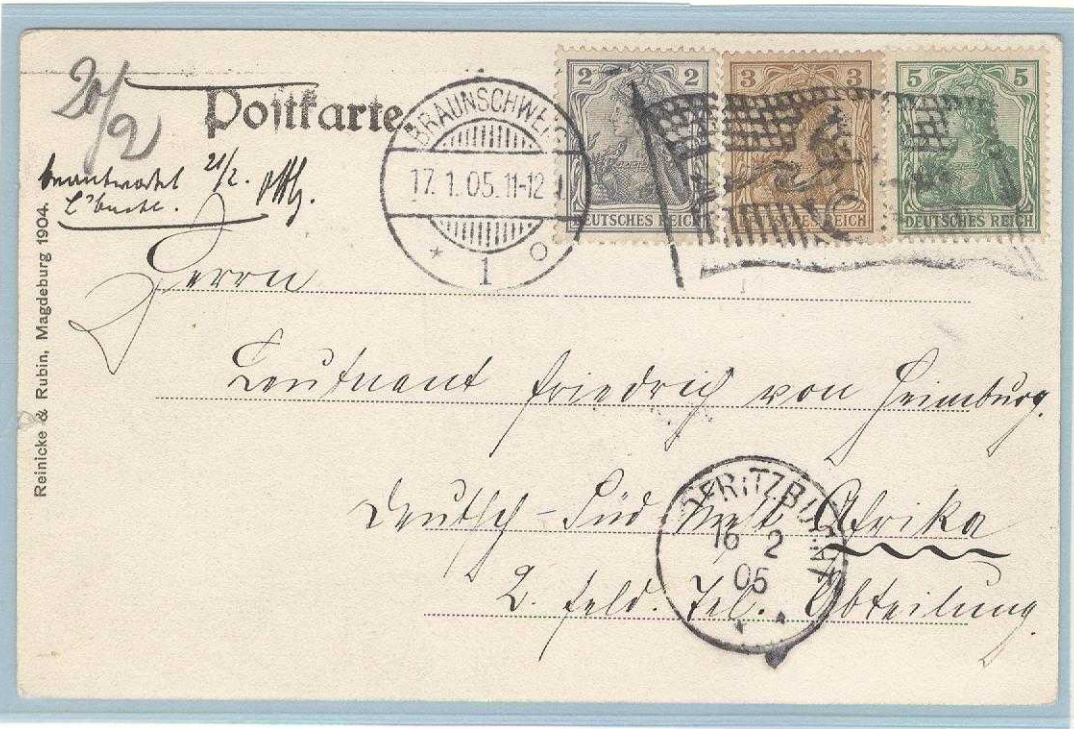 20/2
Postkarte
beantwortet 21/2.
BRAUNSCHWEIG
17.1.05.11-12
* 1 o
2 2
DEUTSCHES REICH
3 3
DEUTSCHES REICH
5 5
DEUTSCHES REICH
Reinicke & Rubin, Magdeburg 1904.
Herrn
Leutnant Friedrich von Heimburg.
Deutsch-Süd West Afrika
2. Feld. Tel. Abteilung
16 2
05